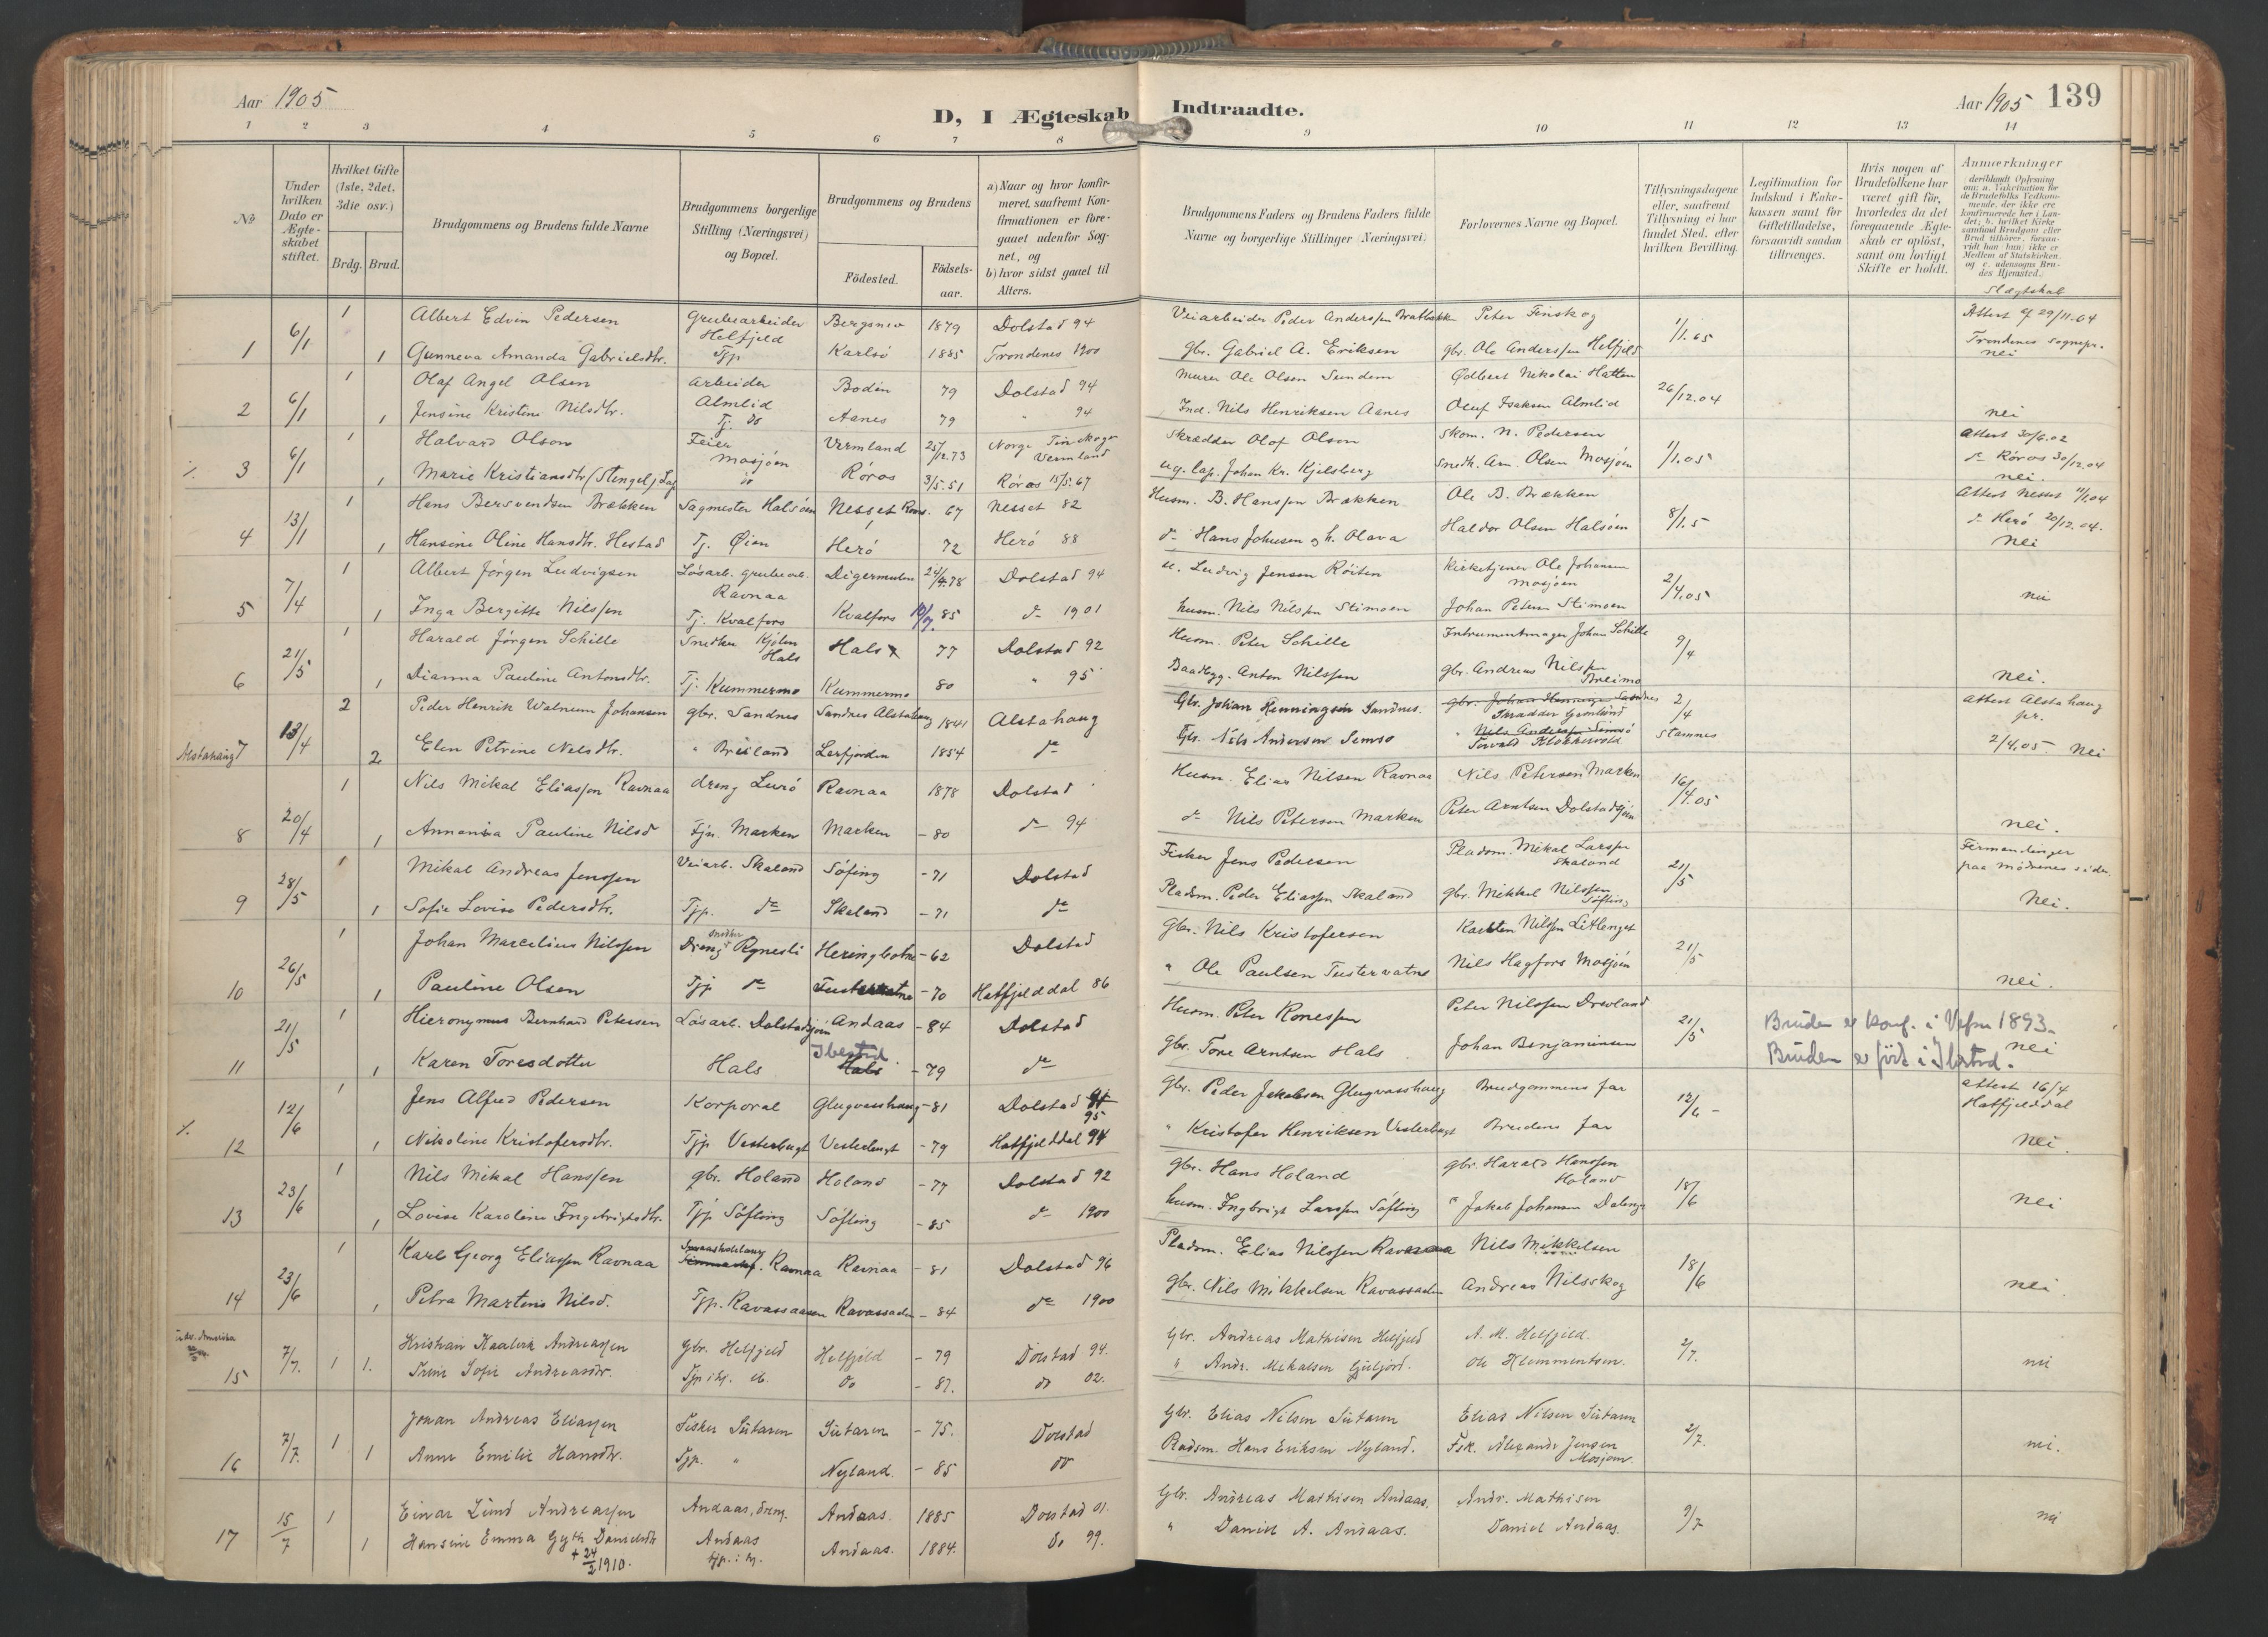 Aar 1905
D, I Ægteskab Indtraadte.
Aar 1905 139
1 2 3 4 5 6 7 8 9 10 11 12 13 14
No
Under hvilken Dato er Ægteskabet stiftet.
Hvilket Gifte (1ste, 2det, 3die osv.)
Brdg. Brud.
Brudgommens og Brudens fulde Navne
Brudgommens borgerlige Stilling (Næringsvei) og Bopæl.
Brudgommens og Brudens
Födested.
Födselsaar.
a) Naar og hvor konfirmeret, saafremt Konfirmationen er foregaaet udenfor Sognet, og
b) hvor sidst gaaet til Alters.
Brudgommens Faders og Brudens Faders fulde Navne og borgerlige Stillinger (Næringsvei)
Forlovernes Navne og Bopæl.
Tillysningsdagene eller, saafremt Tillysning ei har fundet Sted, efter hvilken Bevilling.
Legitimation for Indskud i Enkekassen samt for Giftetilladelse, forsaavidt saadan tiltrænges.
Hvis nogen af Brudefolkene har været gift för, hvorledes da det foregaaende Ægteskab er oplöst, samt om lovligt Skifte er holdt.
Anmærkninger
Slægtskab
1 6/1 1 Albert Edvin Pedersen Grubearbeider Helfjeld Bergsnev 1879 Dolstad 94 Veiarbeider Peder Anderssen Bratbakken Peter Finskog 1/1.05 Attest af 29/11-04
1 Gunneva Amanda Gabrielsdtr. Tjp Karlsö 1885 Trondenes 1900 gbr. Gabriel A. Eriksen gbr. Ole Anderssen Helfjeld Trondenes sognepr. nei
2 6/1 1 Olaf Angel Olsen arbeider Almlid Bodin 79 Dolstad 94 Murer Ole Olsen Sundem Ødbert Nikolai Hatten 26/12.04
1 Jensine Kristine Nilsdtr. Tj. do Aanes 79 " 94 Ind. Nils Henriksen Aanes Oluf Isaksen Almlid nei
3 6/1 1 Halvard Olson Feier Mosjöen Vermland 25/12.73 Norge Vermland Skrædder Olof Olson Skom. N. Pedersen 1/1.05 Attest 30/6.02
1 Marie Kristiansdtr (Stengel) Lap do Röros 3/5.51 Röros 15/5.67 ug. lap. Johan Kr. Kjelsberg Snedk. Arn. Olsen Mosjöen do Röros 30/12.04 nei.
4 13/1 1 Hans Bersvendsen Brækken Sagmester Halsöen Nesset Roms. 67 Nesset 82 Husm. B. Hanssen Brækken Ole B. Brækken 8/1.5 Attest Nesset 11/1.04
1 Hansine Oline Hansdtr. Hestad Tj. Øien Herö 72 Herö 88 do Hans Johnsen og h. Olava Haldor Olsen Halsöen do Herö 20/12.04. Nei
5 7/4 1 Albert Jörgen Ludvigsen Lösarb. grubearb. Ravnaa Digermulen 24/4.78 Dolstad 94 u. Ludvig Jensen Röiten Kirketjener Ole Johansen Mosjöen 2/4.05
1 Inga Bergitte Nilssen Tj. Kvalfors Kvalfors 10/7. 85 do 1901 husm. Nils Nilssen Stimoen Johan Petersen Stimoen nei
6 21/5 1 Harald Jörgen Schille Snedker Kjölen Hals Hals 77 Dolstad 92 Husm. Peter Schille Instrumentmager Johan Schille 9/4
1 Dianna Pauline Antonsdtr. Tj. Kummermo Kummermo 80 " 95 Baadbygg. Anton Nilssen gbr. Andreas Nilssen Breimo nei.
Alstahaug 7 13/4 2 Peder Henrik Walnum Johansen gbr. Sandnes Sandnes Alstahaug 1841 Alstahaug Gbr. Johan Henningsen Sandnes. gbr. Johan Henningsen Sandnes Skrædder Grönlund 2/4 Attest Alstahaug pr.
2 Elen Petrine Nelsdtr. " Breiland Leirfjorden 1854 do Gbr. Nils Andersen Semsö " Nils Anderssen Semsö Torvald Klokkervold Stamnes 2/4.05. Nei
8 20/4 1 Nils Mikal Eliassen Ravnaa dreng Lurö Ravnaa 1878 Dolstad Husm. Elias Nilsen Ravnaa Nils Petersen Marken 16/4.05
1 Annanica Pauline Nilsd Tjn. Marken Marken -80 do 94 do Nils Petersen Marken Peter Arntsen Dolstadsjöen nei.
9 28/5 1 Mikal Andreas Jenssen Veiarb. Skaland Söfing -71 Dolstad Fisker Jens Pedersen Pladsm. Mikal Larssen Skaland 21/5 Firmendinger paa mödrenes side.
1 Sofie Lovise Pedersdtr. Tjp. do Skaland -71 do Pladsm. Peder Eliassen Skaland gbr. Mikkel Nilssen Söfting Nei.
10 26/5 1 Johan Marcelius Nilssen Dreng snedker Rynesli Heringbotne -62 Dolstad Gbr. Nils Kristofersen Karsten Nilssen Litlenget 21/5
1 Pauline Olsen Tjp do Tustervatne -70 Hatfjelddal 86 " Ole Paulsen Tustervatne Nils Hagfors Mosjöen nei.
11 21/5 1 Hieronymus Bernhard Petersen Lösarb. Dolstadsjöen Andaas -84 Dolstad Husm. Peter Ronessen Peter Nilssen Drevland 21/5 Bruden er konf. i Vefsn 1893.
1 Karen Toresdotter Hals Ibestad Hals -79 do gbr. Tore Arntsen Hals Johan Benjaminsen Bruden er född i Ibestad. nei
12 12/6 1 Jens Alfred Pedersen Korporal Glugvasshaug -81 Dolstad 95 Gbr. Peder Jakobsen Glugvasshaug Brudgommens far 12/6 - Attest 16/4 Hatfjelddal
1 Nikoline Kristofersdtr. Tjp Vesterbugt Vesterbugt -79 Hatfjelddal 94 " Kristofer Henriksen Vesterbugt Brudens far nei.
13 23/6 1 Nils Mikal Hanssen gbr. Holand Holand -77 Dolstad 92 Gbr. Hans Holand gbr. Harald Hanssen Holand 18/6
1 Lovise Karoline Ingebrigtsdtr. Tjp Söfting Söfting -85 do 1900 husm. Ingbrigt Larssen Söfting " Jakob Johansen Dalenge nei
14 23/6 1 Karl Georg Eliassen Ravnaa Ravnaa Ravnaa -81 Dolstad 96 Pladsm. Elias Nilssen Ravnaa Nils Mikkelsen 18/6
1 Petra Martine Nilsd. Tjp. Ravassaasen Ravassaasen -84 do 1900 gbr. Nils Mikkelsen Ravassaasen Andreas Nilsskog nei.
15 7/7. 1 Kristian Kaalerk Andreassen Gbr. Helfjeld Helfjeld - 79 Dolstad 94. Gbr. Andreas Mathisen Helfjeld A. M. Helfjeld. 2/7.
1. Trine Sofie Andreasdtr. Tjp i hj. do - 87. do 02. " Andr. Mikalsen Gjelfjord. Ole Klemmentsen. nei
16 7/7. 1 Johan Andreas Eliassen Fisker Sütaren Sütaren - 75. Dolstad Gbr. Elias Nilsen Sütaren Elias Nilsen Sütaren 2/7.
1 Anne Emilie Hansdtr. Tjp. " Nyland. - 85 do Pladsm. Hans Eriksen Nyland. Fsk. Alexander Jensen Mosjöen nei.
17 15/7 1 Einar Lund Andreassen Andaas, dreng. Andaas. 1885 Dolstad 01. Gbr. Andreas Mathisen Andaas. Andr. Mathisen 9/7
1 Hansine Emma Gyth Danielsdtr Andaas tjp. i hj. Andaas. 1884. do 99. " Daniel A. Andaas. Daniel Andaas. nei
+ 24/2 1910.